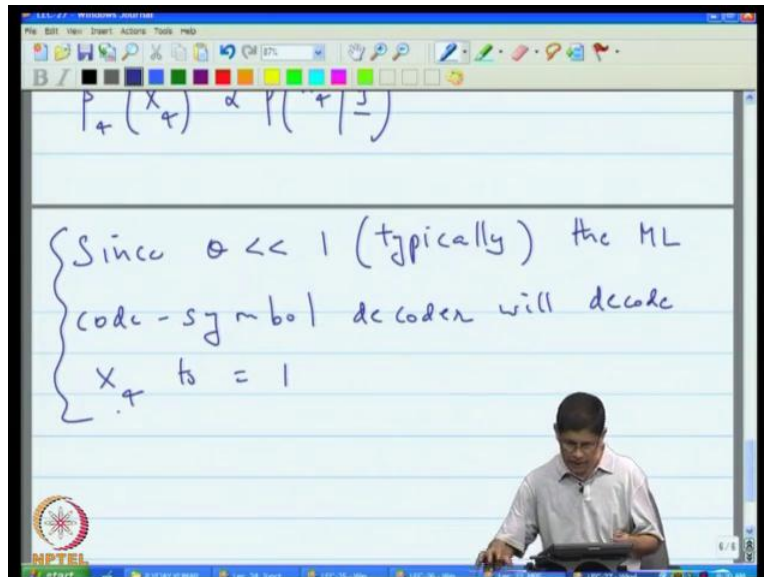 LEC-27 - Windows Journal
File Edit View Insert Actions Tools Help
87%
B I
P4 (X4) α P( 4 | y )
Since θ << 1 (typically) the ML
code-symbol decoder will decode
X4 to = 1
6/6
NPTEL
start